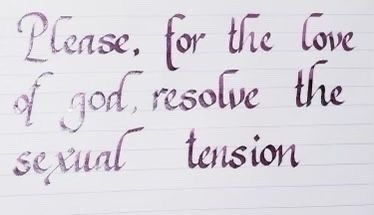 Please, for the love
of god, resolve the
sexual tension